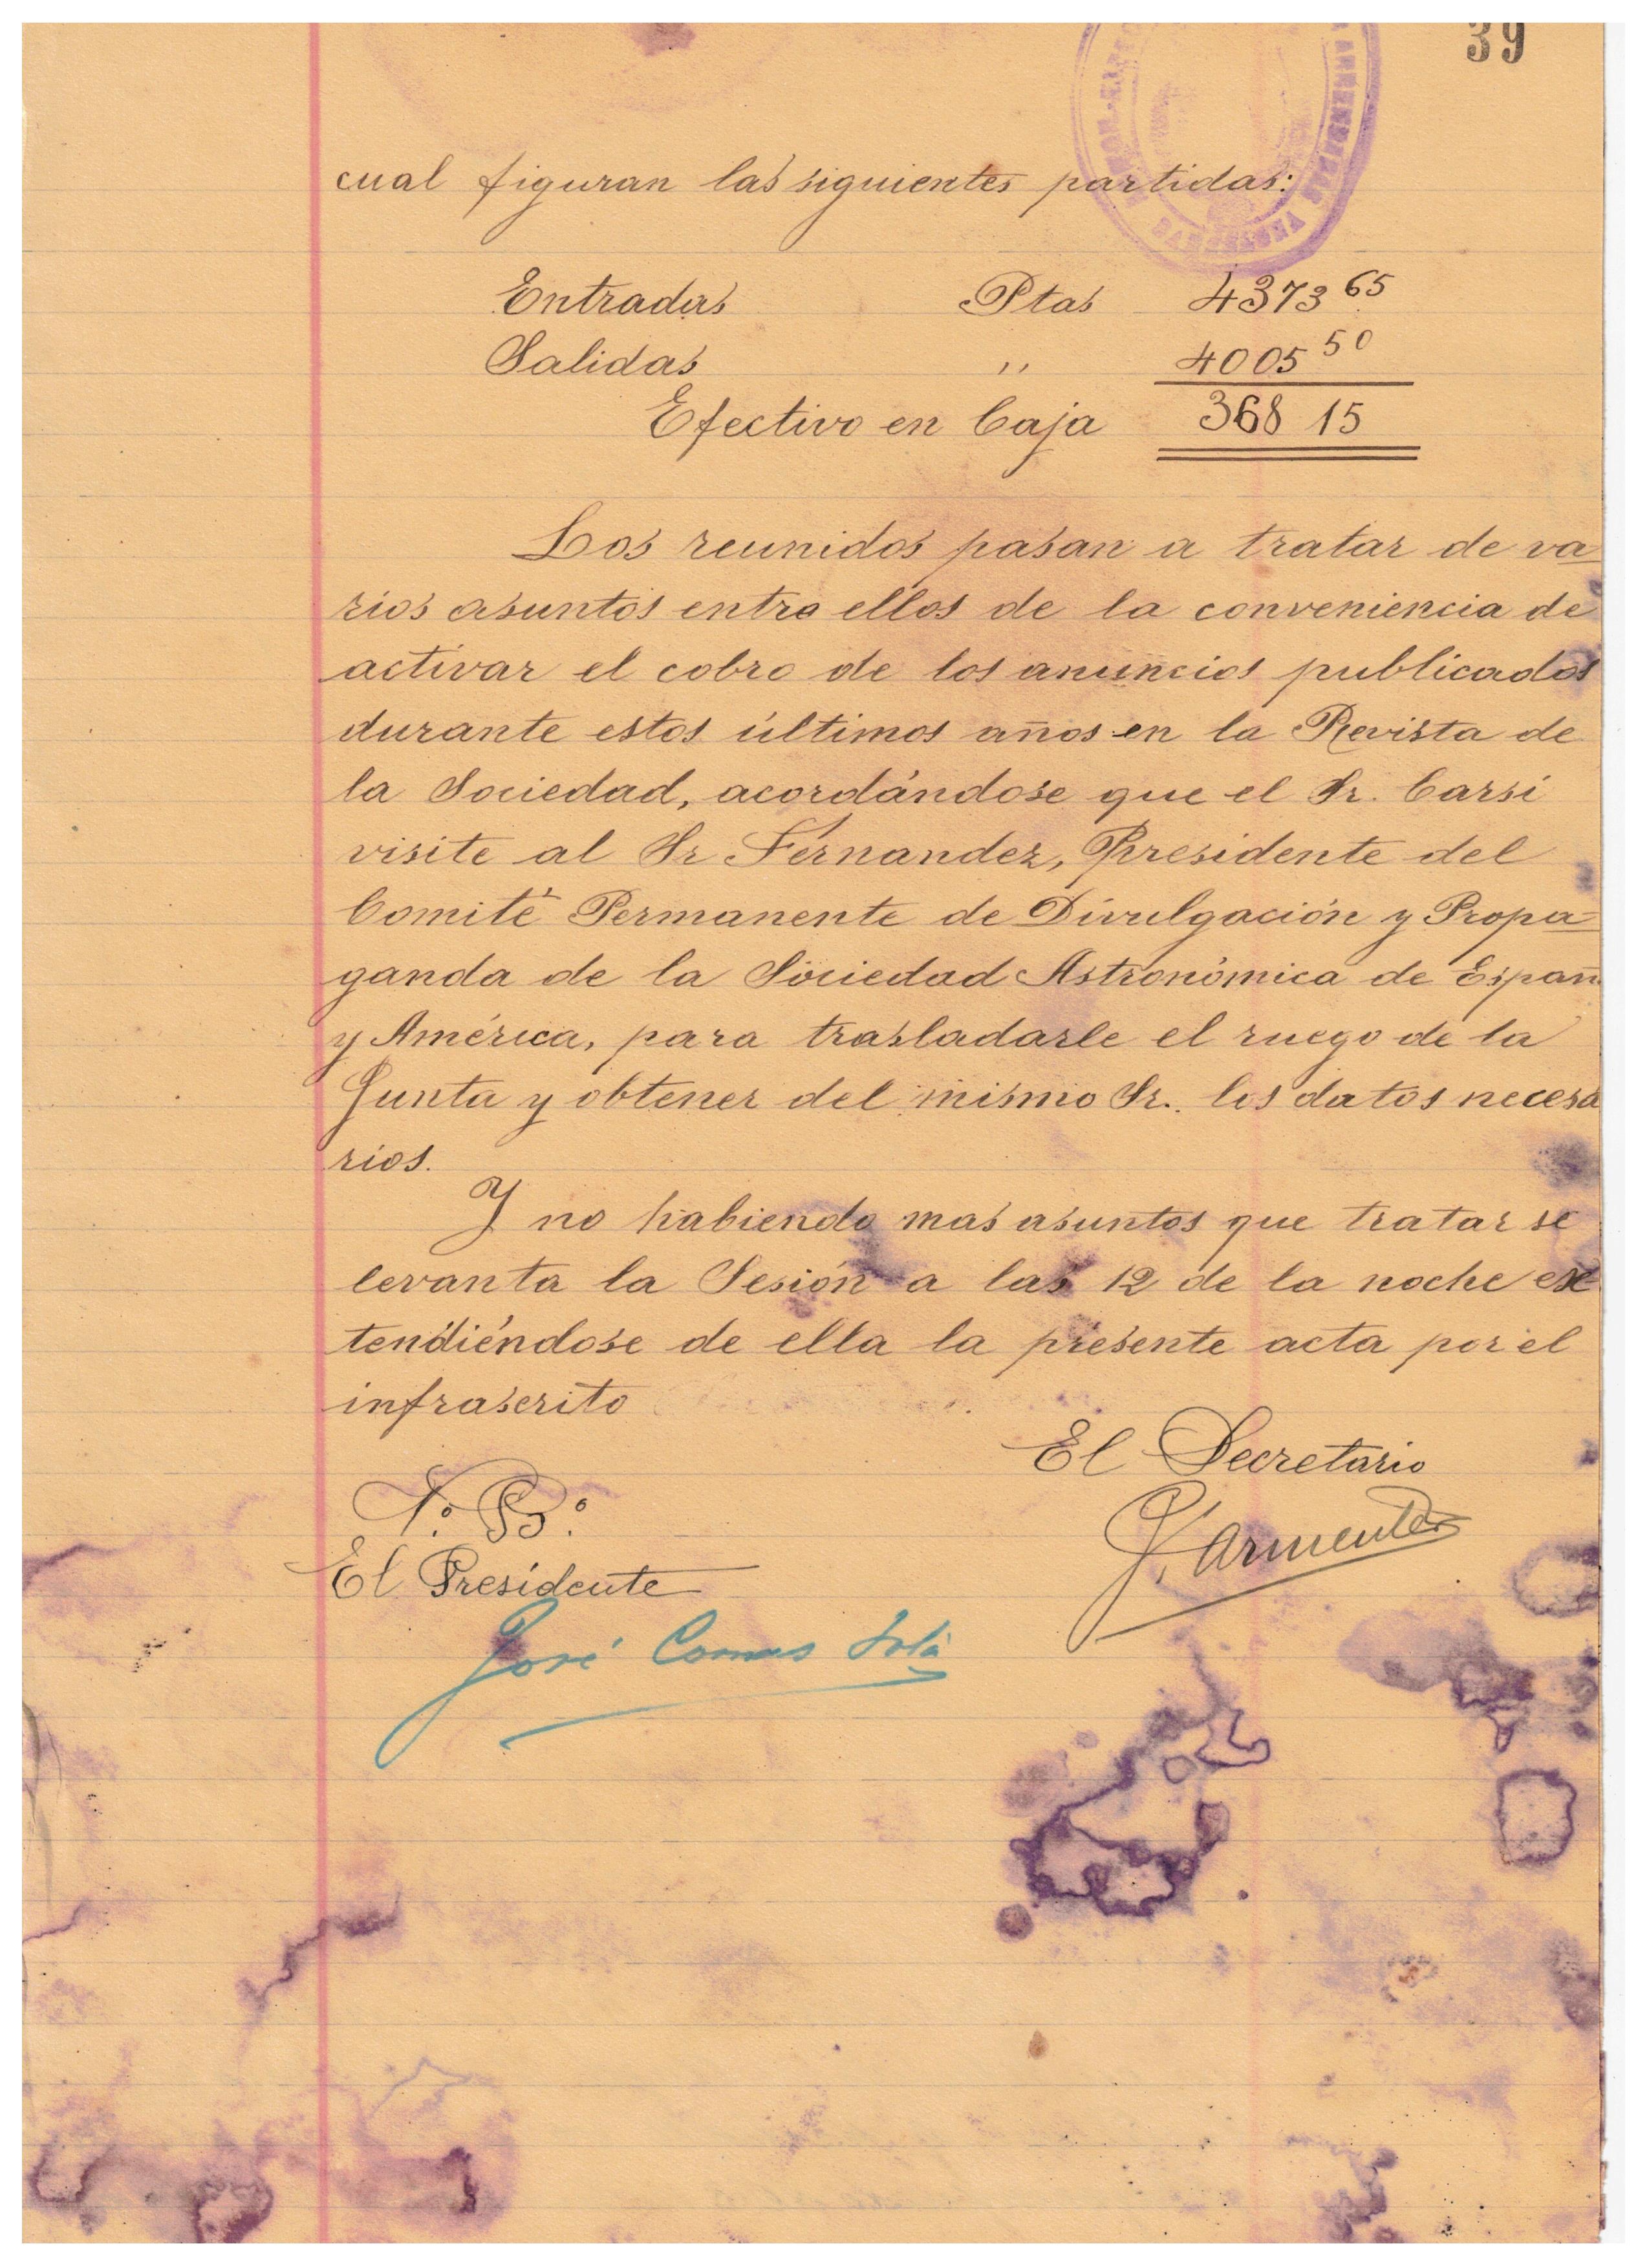 39
cual figuran las siguientes partidas:
Entradas Ptas 4373 65
Salidas ,, 4005 50
Efectivo en Caja 368 15
Los reunidos pasan a tratar de va
rios asuntos entre ellos de la conveniencia de
activar el cobro de los anuncios publicados
durante estos últimos años en la Revista de
la Sociedad, acordándose que el Sr. Carsi
visite al Sr Fernandez, Presidente del
Comité Permanente de Divulgación y Propa-
ganda de la Sociedad Astronómica de Españ
y América, para trasladarle el ruego de la
Junta y obtener del mismo Sr. los datos necesa
rios.
Y no habiendo mas asuntos que tratar se
levanta la Sesión a las 12 de la noche ex-
tendiéndose de ella la presente acta por el
infrascrito
El Secretario
V.º B.º
J. Armenter
El Presidente
José Comas Solá